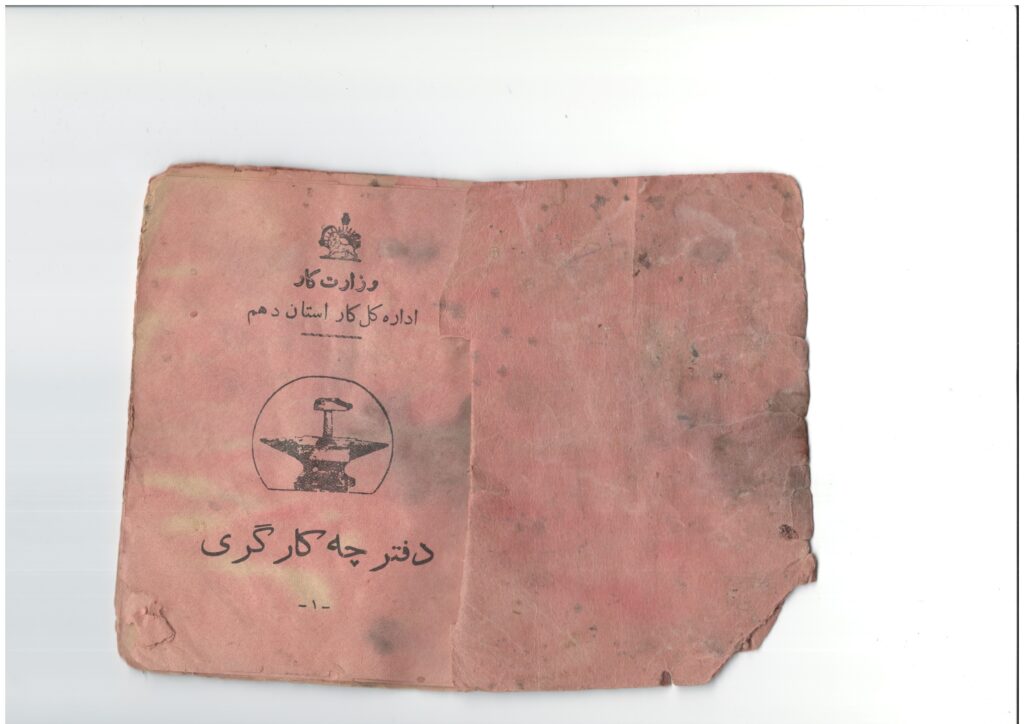 وزارت کار
اداره کل کار استان دهم
دفترچه کارگری
-۱-